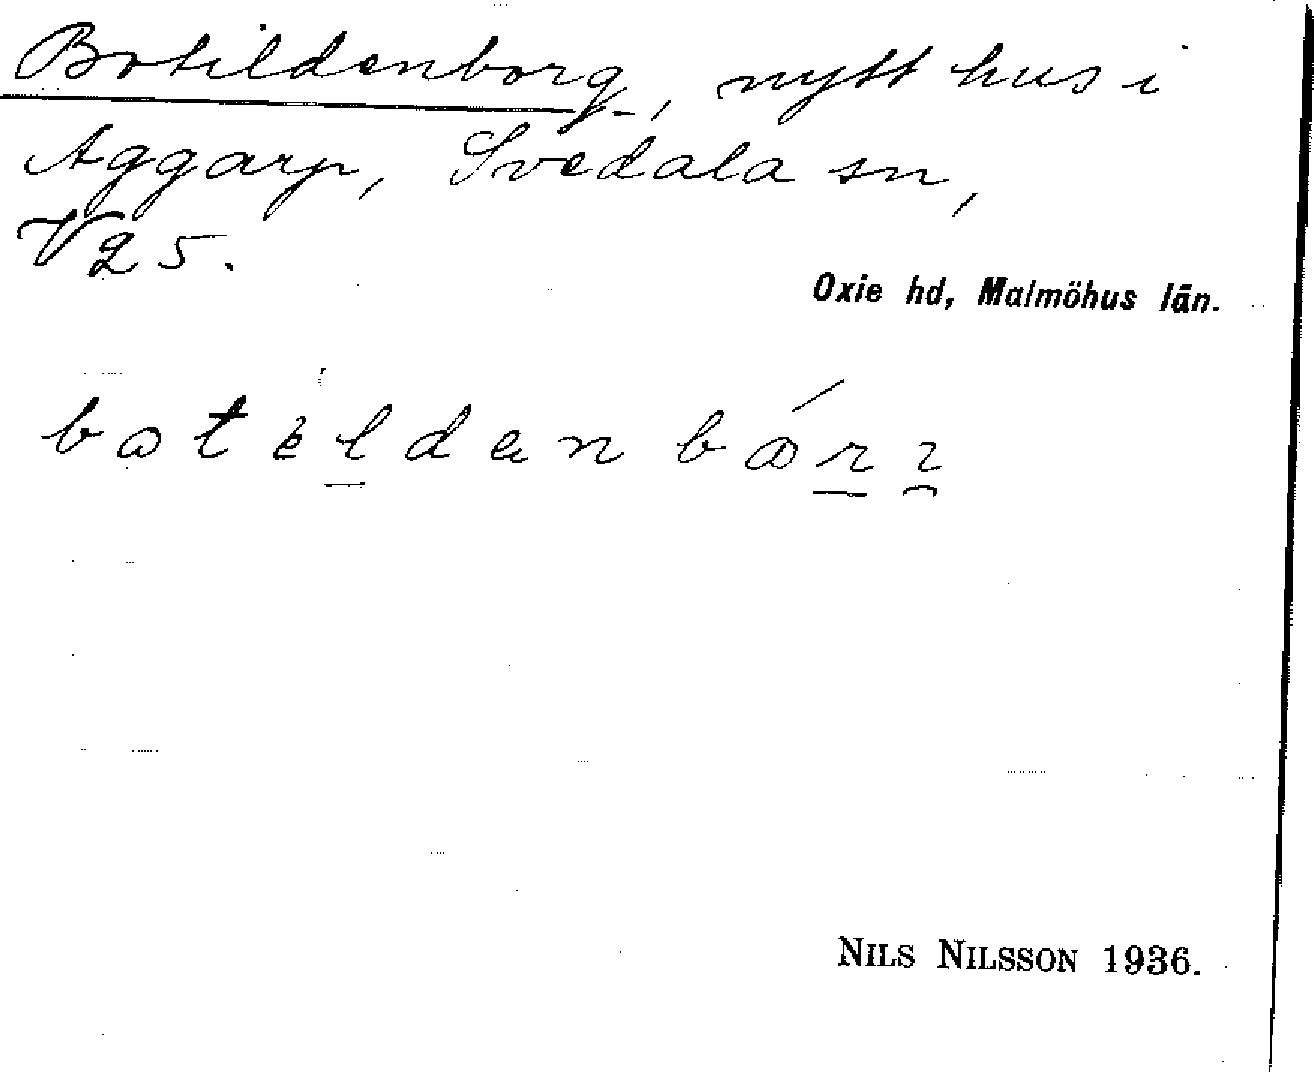 Botildenborg, nytt hus i
Aggarp, Svedala sn,
V25.
Oxie hd, Malmöhus län.
NILS NILSSON 1936.